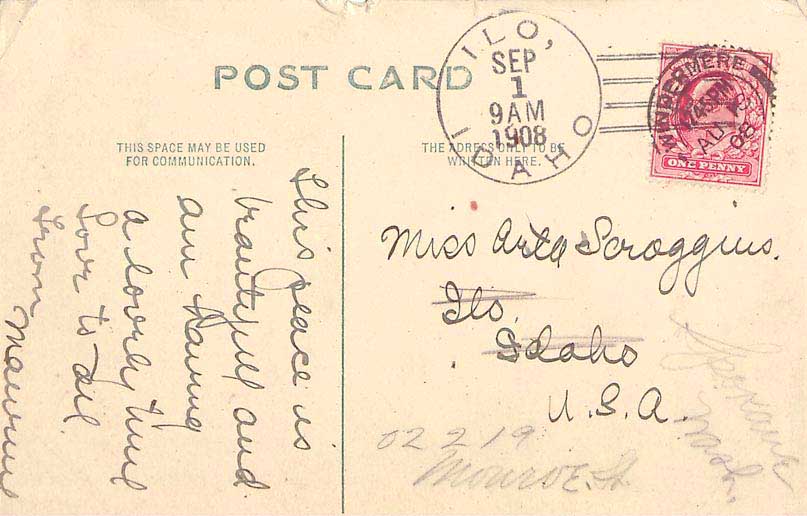 POST CARD
THIS SPACE MAY BE USED
FOR COMMUNICATION.
THE ADRESS ONLY TO BE
WRITTEN HERE.
ILO,
SEP
1
9AM
1908
IDAHO
WINDERMERE
7.45PM
AU 19
08
ONE PENNY
This place is
beautyfull and
am having
a lovely time
Love to all
from
Miss Arta Scroggins.
Ilo.
Idaho
U.S.A.
02219
Monroe St.
Spokane
Wash.